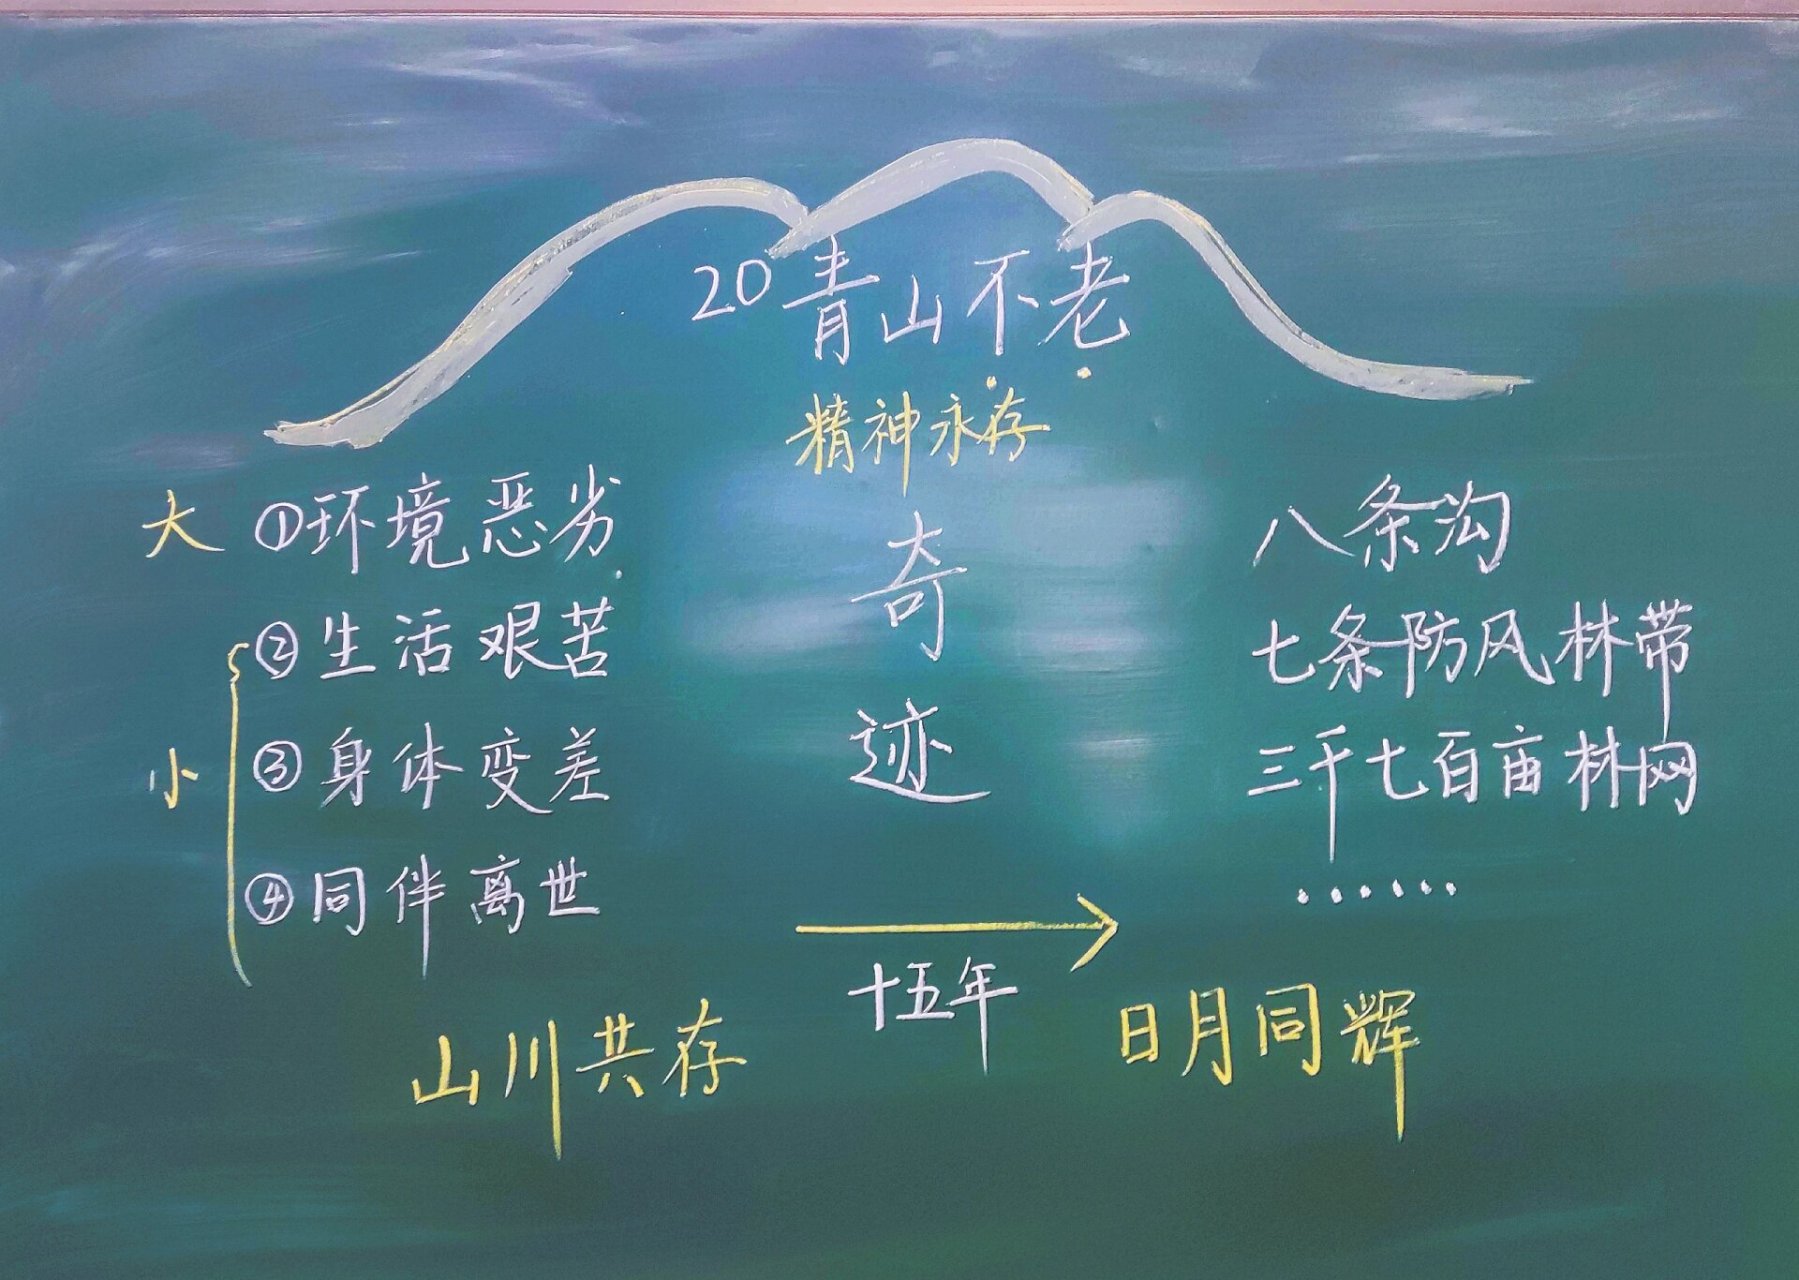 20青山不老
精神永存
大 ①环境恶劣
②生活艰苦
小 ③身体变差
④同伴离世
奇
迹
十五年
八条沟
七条防风林带
三千七百亩林网
······
山川共存
日月同辉